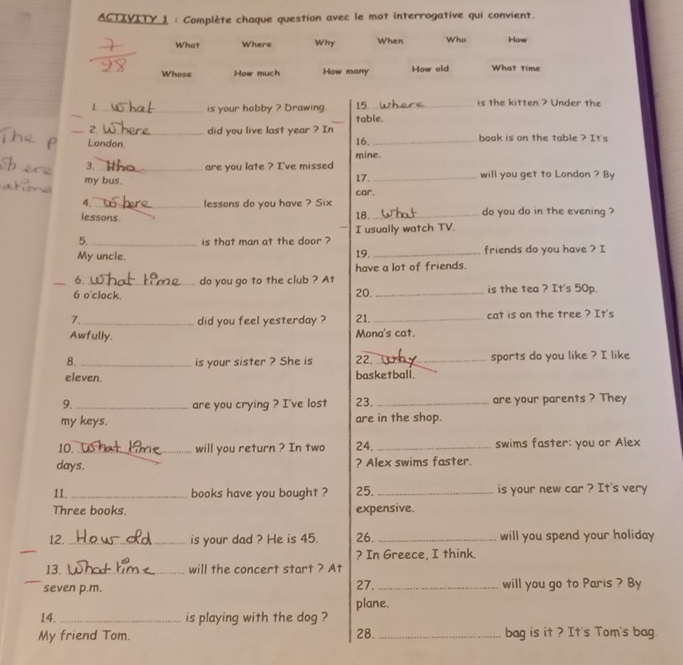 ACTIVITY 1 : Complète chaque question avec le mot interrogative qui convient.
7
28
What Where Why When Who How
Whose How much How many How old What time
The p
where
1. What is your hobby ? Drawing.
2. Where did you live last year ? In
London.
3. Who are you late ? I've missed
my bus.
4. Where lessons do you have ? Six
lessons.
5. is that man at the door ?
My uncle.
6. What time do you go to the club ? At
6 o'clock.
7. did you feel yesterday ?
Awfully.
8. is your sister ? She is
eleven.
9. are you crying ? I've lost
my keys.
10. What time will you return ? In two
days.
11. books have you bought ?
Three books.
12. How old is your dad ? He is 45.
13. What time will the concert start ? At
seven p.m.
14. is playing with the dog ?
My friend Tom.
15. where is the kitten ? Under the
table.
16. book is on the table ? It's
mine.
17. will you get to London ? By
car.
18. What do you do in the evening ?
I usually watch TV.
19. friends do you have ? I
have a lot of friends.
20. is the tea ? It's 50p.
21. cat is on the tree ? It's
Mona's cat.
22. why sports do you like ? I like
basketball.
23. are your parents ? They
are in the shop.
24. swims faster: you or Alex
? Alex swims faster.
25. is your new car ? It's very
expensive.
26. will you spend your holiday
? In Greece, I think.
27. will you go to Paris ? By
plane.
28. bag is it ? It's Tom's bag.